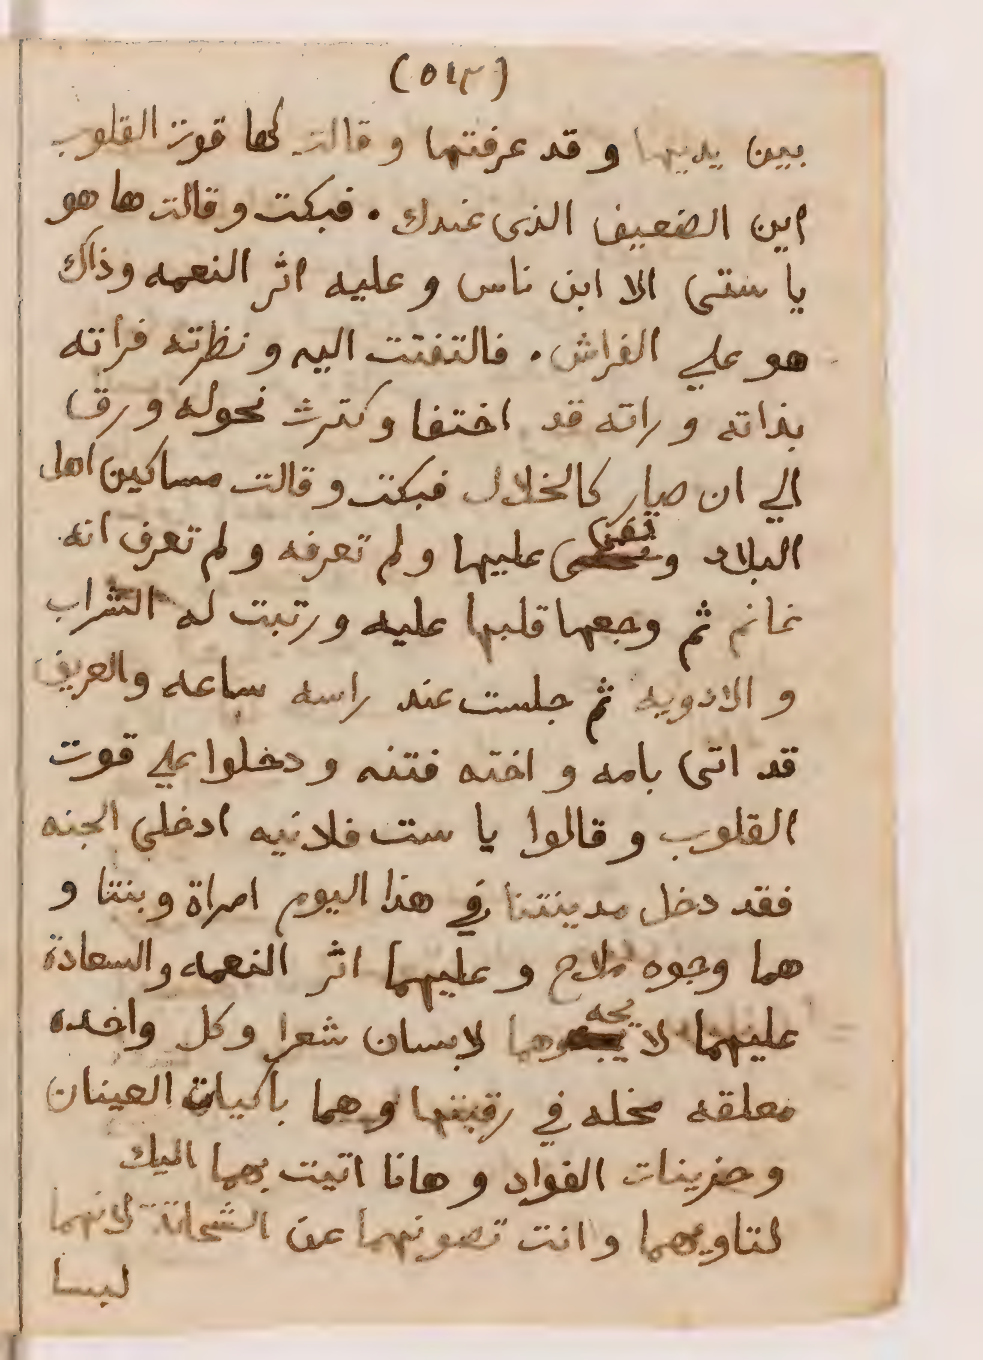 (٥١٣)
بين يديها و قد عرفتها و قالت لها قوت القلوب
اين الضعيف الذى عندك . فبكت و قالت ها هو
يا ستى الا ابن ناس و عليه اثر النعمه وذاك
هو علي الفراش . فالتفتت اليه و نظرته فراته
بذاته و راته قد اختفا و كترت نحوله و رق
الي ان صار كالخلال فبكت و قالت مساكين اهل
البلاد و عليها و لم تعرفه و لم تعرف انه
غانم ثم وجعها قلبها عليه و رتبت له الشراب
و الادويه ثم جلست عند راسه ساعه والعريف
قد اتى بامه و اخته فتنه و دخلوا علي قوت
القلوب و قالوا يا ست فلانيه ادخلى الجنه
فقد دخل مدينتنا في هذا اليوم امراة و بنتا و
هما وجوه ملاح و عليهما اثر النعمه والسعادة
عليهما لا وهما لابسان شعرا و كل واحده
معلقه مخله في رقبتها وهما باكيات العينان
و حزينات الفواد و هانا اتيت بهما اليك
لتاويهما و انت تصونهما عن الشحاتة لانهما
ليسا